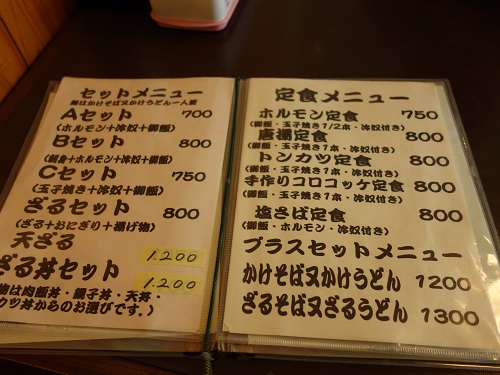 セットメニュー
麺はかけそば又かけうどん一人前
Aセット 700
(ホルモン+冷奴+御飯)
Bセット 800
(刺身+ホルモン+冷奴+御飯)
Cセット 750
(玉子焼き+冷奴+御飯)
ざるセット 800
(ざる+おにぎり+揚げ物)
天ざる 1.200
ざる丼セット 1.200
物は肉飯丼・親子丼・天丼・
カツ丼からのお選びです。)
定食メニュー
ホルモン定食 750
(御飯・玉子焼き1/2本・冷奴付き)
唐揚定食 800
(御飯・玉子焼き1/2本・冷奴付き)
トンカツ定食 800
(御飯・玉子焼き・冷奴付き)
手作りコロコッケ定食 800
(御飯・玉子焼き・冷奴付き)
塩さば定食 800
(御飯・ホルモン・冷奴付き)
プラスセットメニュー
かけそば又かけうどん 1200
ざるそば又ざるうどん 1300